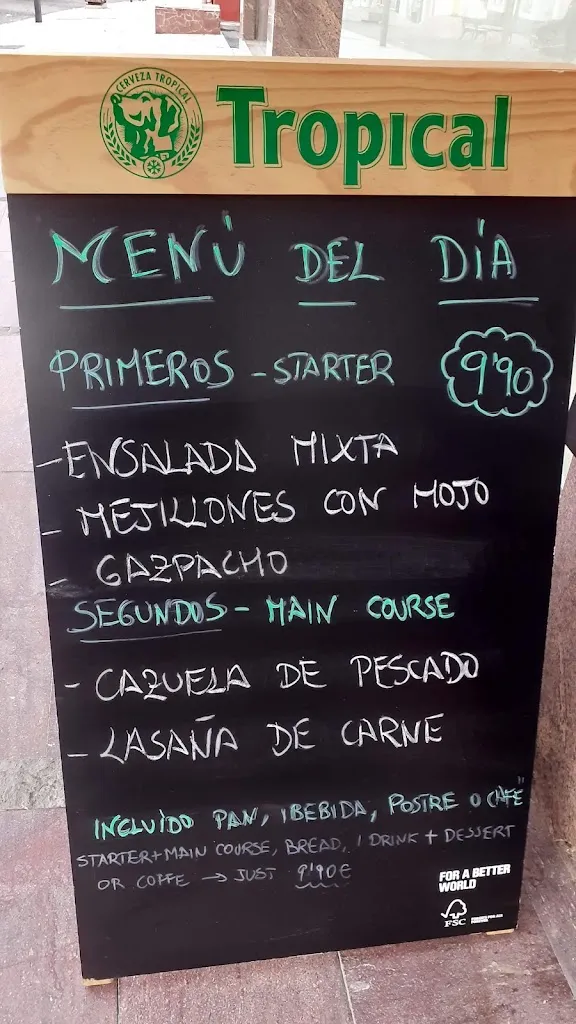 CERVEZA TROPICAL
Tropical
MENÚ DEL DÍA
PRIMEROS - STARTER
9'90
- ENSALADA MIXTA
- MEJILLONES CON MOJO
- GAZPACHO
SEGUNDOS - MAIN COURSE
- CAZUELA DE PESCADO
- LASAÑA DE CARNE
INCLUÍDO PAN, 1BEBIDA, POSTRE O CAFÉ
STARTER+MAIN COURSE, BREAD, 1 DRINK + DESSERT
OR COFFE → JUST 9'90€
FOR A BETTER
WORLD
FSC